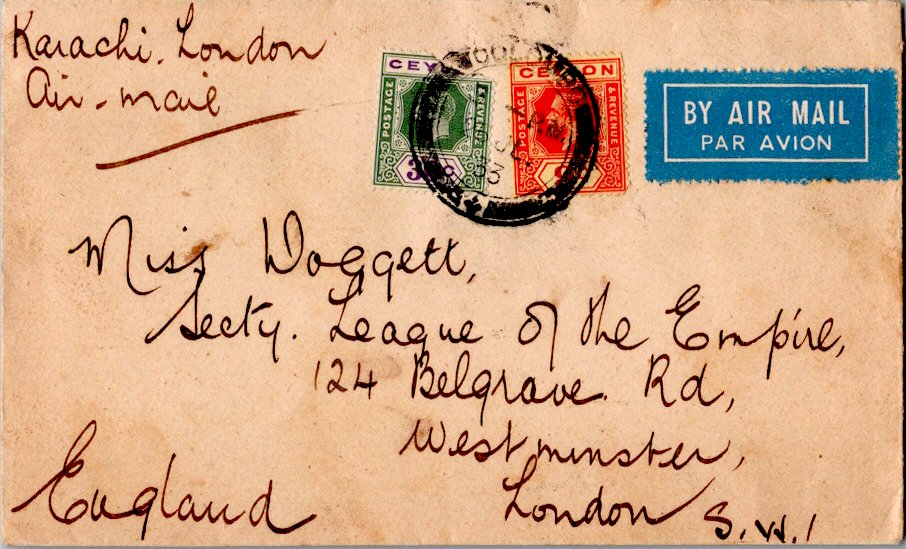 Karachi-London
Air-mail
CEYLON
POSTAGE
& REVENUE
CEYLON
POSTAGE
& REVENUE
BY AIR MAIL
PAR AVION
Miss Doggett,
Secty. League of the Empire,
124 Belgrave. Rd,
Westminster,
London S.W.1
England